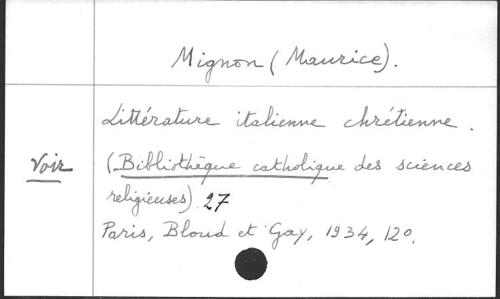 Mignon (Maurice).
Littérature italienne chrétienne.
Voir (Bibliothèque catholique des sciences
religieuses) 27
Paris, Bloud et Gay, 1934, 12o.